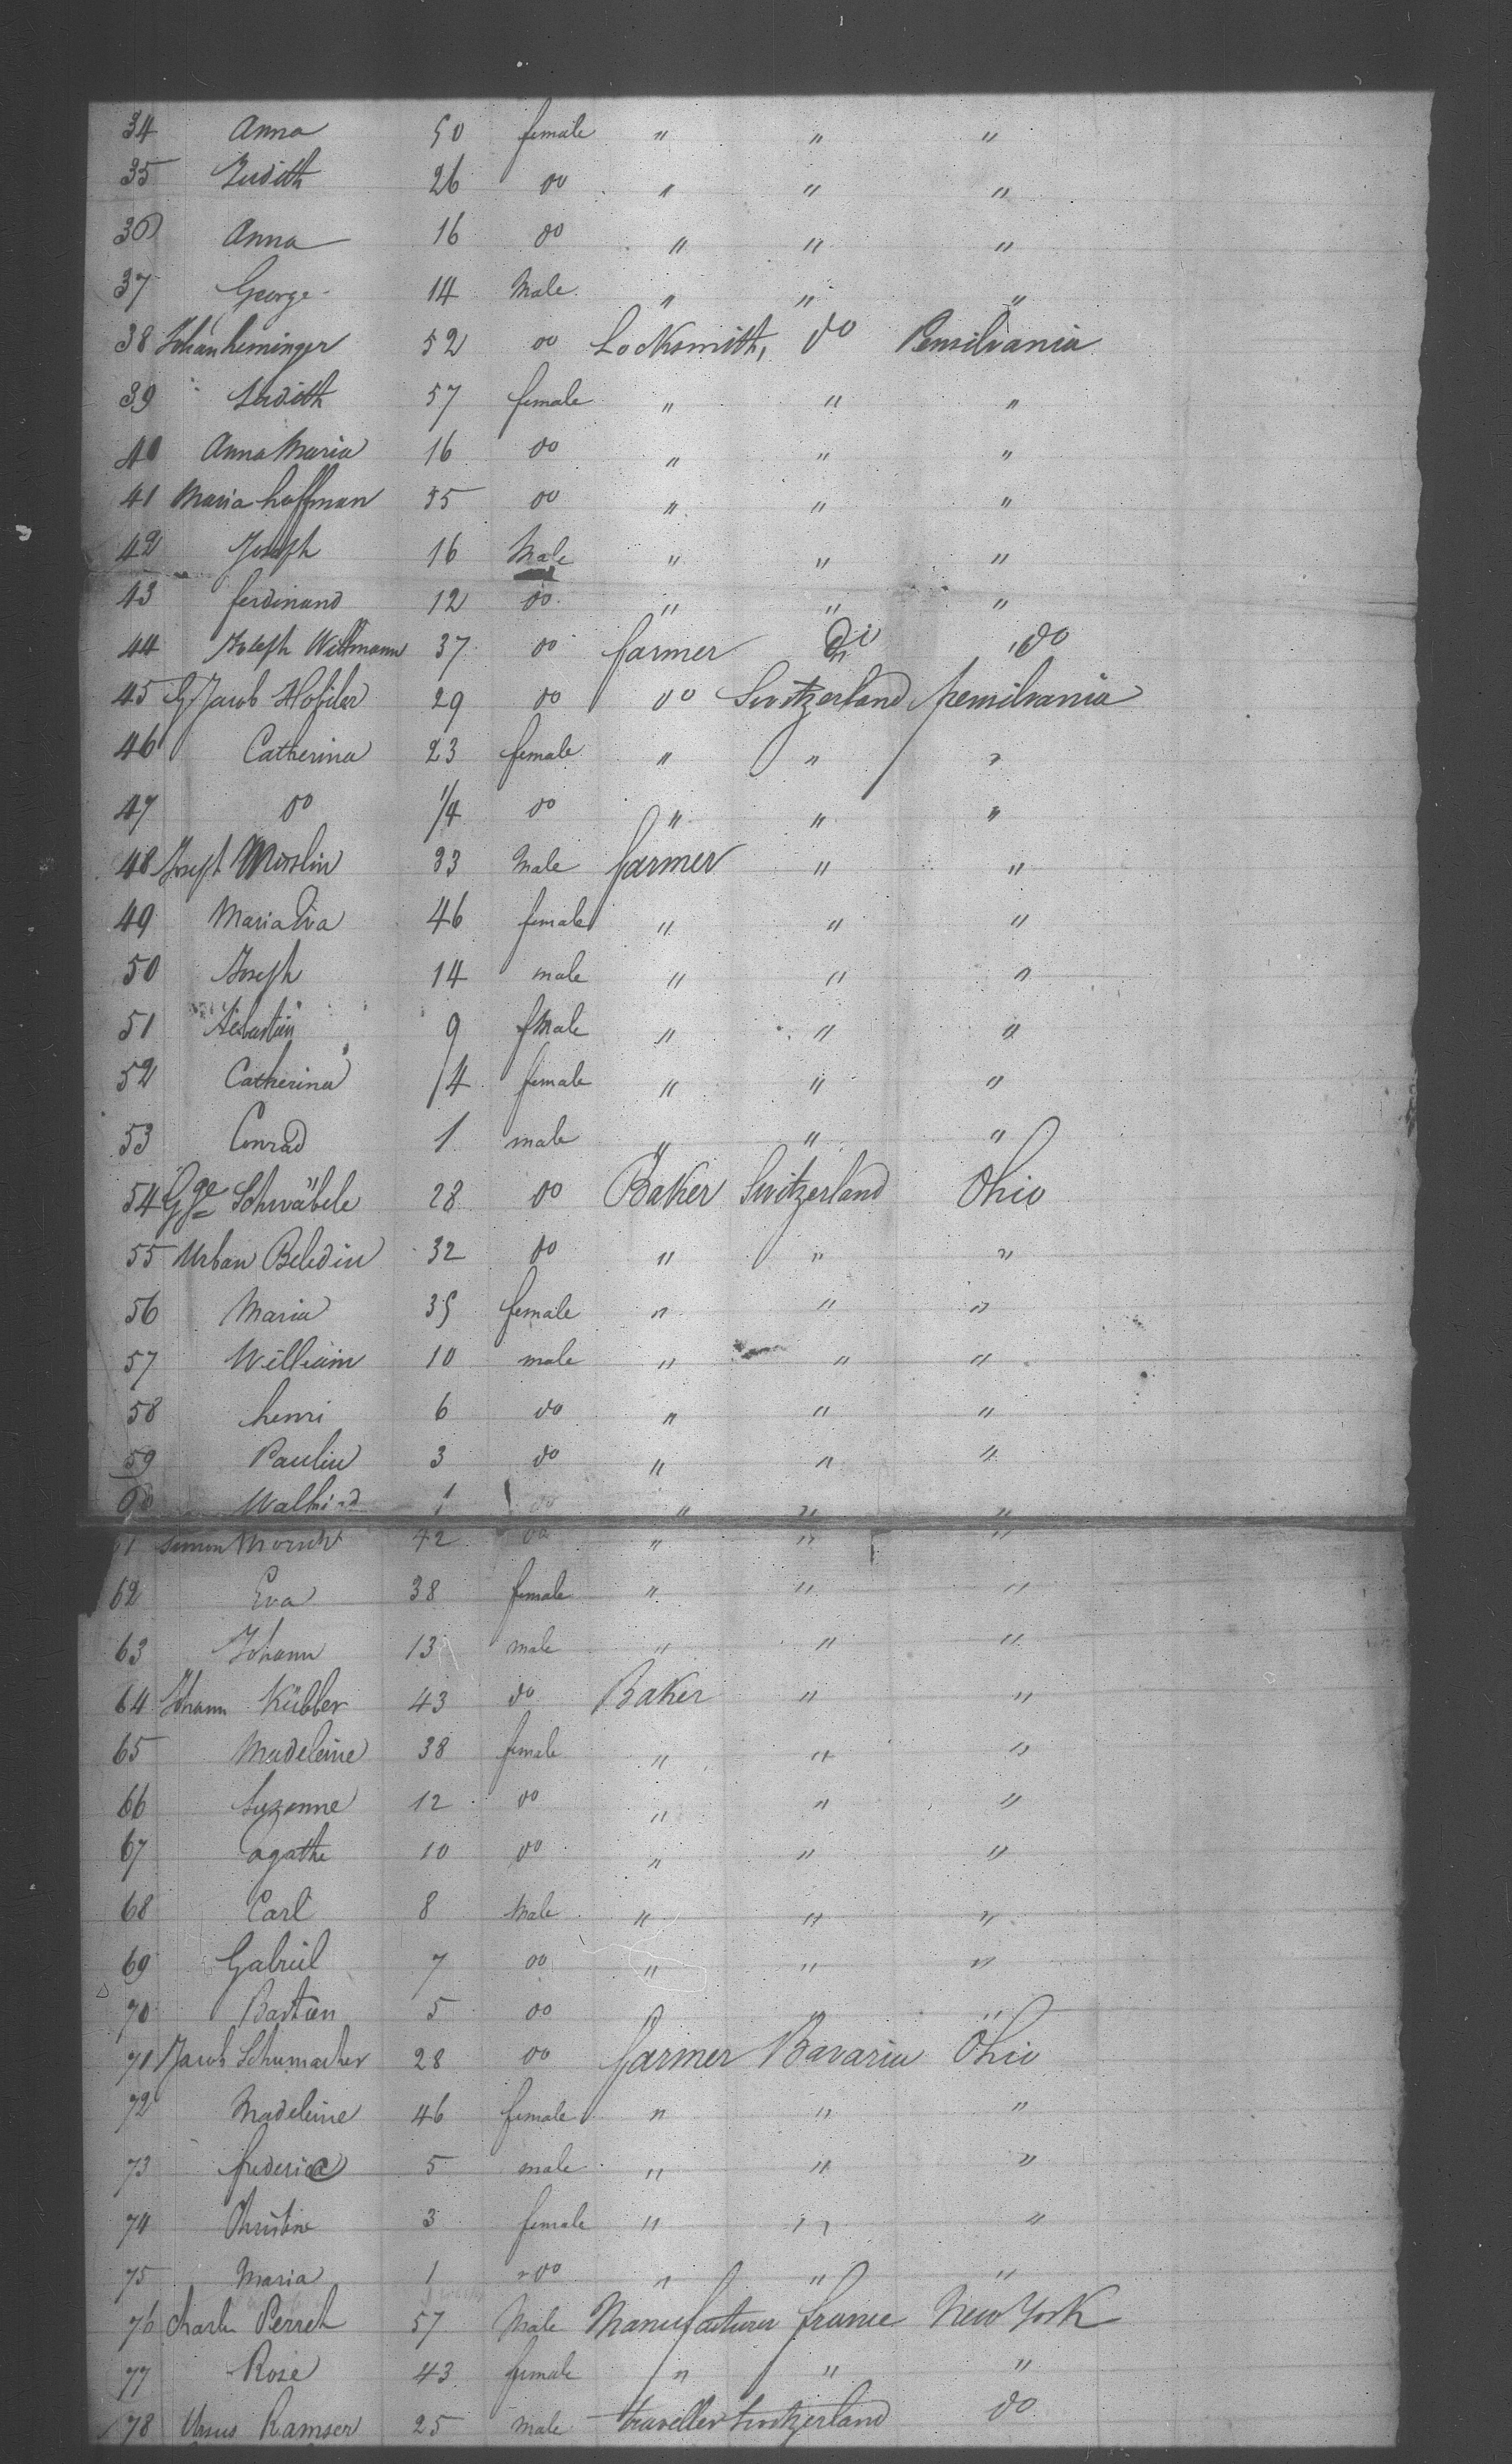 34 Anna 50 female " " "
35 Judith 26 do " " "
36 Anna 16 do " " "
37 George 14 Male " " "
38 Johan heminger 52 do Locksmith, do Pensilvania
39 Judith 57 female " " "
40 Anna Maria 16 do " " "
41 Maria hoffman 35 do " " "
42 Joseph 16 Male " " "
43 ferdinand 12 do " " "
44 Joseph Wittmann 37 do farmer do
45 Jacob Hofiler 29 do do Switzerland pensilvania
46 Catherina 23 female " " "
47 do 1/4 do " " "
48 Joseph 33 Male farmer " "
49 Maria Eva 46 female " " "
50 Joseph 14 male " " "
51 Sebastian 9 fMale " " "
52 Catherina 14 female " " "
53 Conrad 1 male " " "
54 Gge Schwäbele 28 do Baker Switzerland Ohio
55 Urban Beledin 32 do " " "
56 Maria 35 female " " "
57 William 10 male " " "
58 henri 6 do " " "
59 Paulin 3 do " " "
60 1 do " " "
61 Simon 42 do " " "
62 Eva 38 female " " "
63 Johann 13 male " " "
64 Johann Kübler 43 do Baker " "
65 Madeleine 38 female " " "
66 Suzanne 12 do " " "
67 agathe 10 do " " "
68 Carl 8 Male " " "
69 Gabriel 7 do " " "
70 Bastien 5 do " " "
71 Jacob Schumacher 28 do farmer Bavaria Ohio
72 Madeleine 46 female " " "
73 frederica 5 male " " "
74 Christine 3 female " " "
75 Maria 1 do " " "
76 Charles Perret 57 Male Manufacturer france New York
77 Rose 43 female " " "
78 Ursus Ramser 25 male traveller Switzerland do